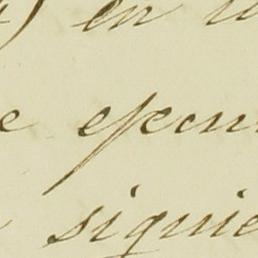 en
ejecu
siguie